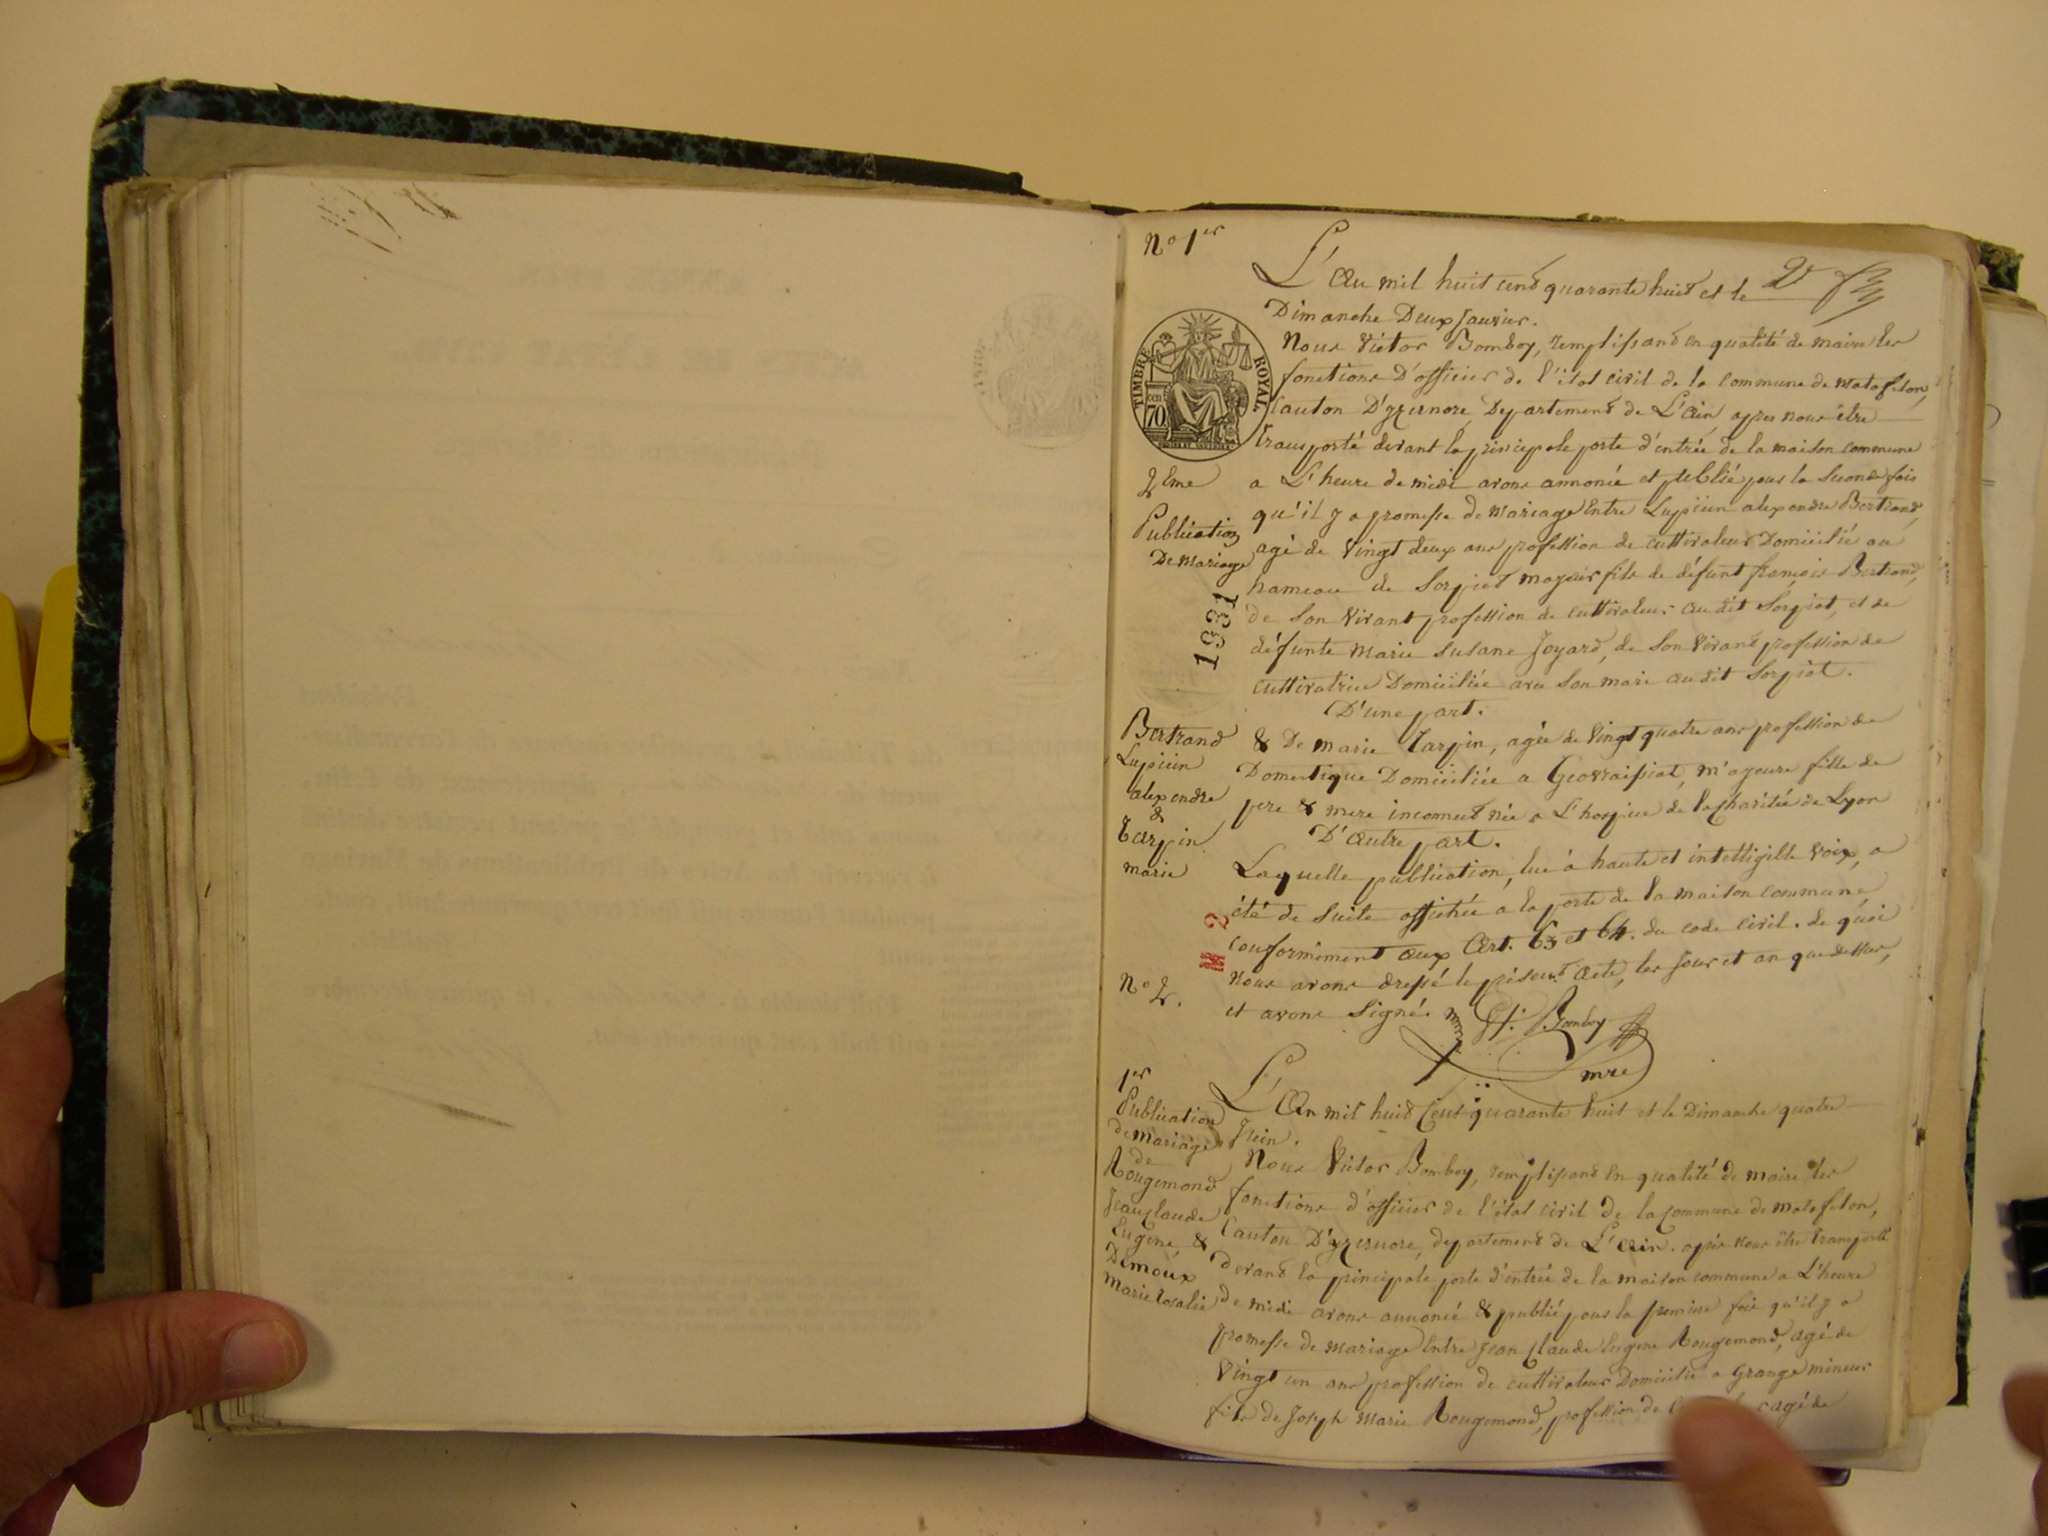 No 1er
L'An mil huit cent quarante huit et le
Dimanche Deux Janvier.
Nous Victor Bomboy, remplissant en qualité de maire les
fonctions D'officier de l'état civil de la commune de matafelon,
Canton D'yzernore, Departement de L'ain, apres nous être
transporté devant la principale porte d'entrée de la maison commune
a L'heure de midi avons annoncé et publié pour la Seconde fois
qu'il y a promesse de mariage Entre Lupicin alexendre Bertrand,
agé de vingt deux ans profession de cultivateur Domicilié au
hameau de Sorpiat mageur fils de défunt françois Bertrand,
de Son vivant profession de cultivateur au dit Sorpiat, et de
défunte marie Susane Joyard, de Son vivant profession de
cultivatrice Domiciliée avec Son mari au dit Sorpiat.
D'une part.
& De marie Tarpin, agée de vingt quatre ans profession de
Domestique Domiciliée a Géovraissiat, m'ageure fille de
pere & mere inconnut née a L'hospice de la Charitée de Lyon
D'Autre part.
Laquelle publication, lue à haute et intelligible voix, a
été de suite affichée a la porte de la maison commune,
conformément aux Art. 63 et 64. du code civil. de quoi
Nous avons dressé le présent acte, les jour et an que dessus,
et avons Signé.
Bomboy
mre
TIMBRE ROYAL
70 cen
2eme
Publication
De mariage
1931
Bertrand
Lupicin
alexendre
&
Tarpin
marie
2
No 2.
1er
Publication
de mariage
de
Rougemond
Jean claude
Eugene, &
Demoux
Marie rosalie
L'An mil huit Cent quarante huit et le Dimanche quatre
Juin.
Nous Victor Bomboy, remplissant en qualité de maire les
fonctions d'officier de l'état civil de la commune de matafelon,
Canton D'yzernore, departement de L'Ain. après nous être transporté
devant la principale porte d'entrée de la maison commune a L'heure
de midi avons annoncé & publié pour la premiere fois qu'il y a
promesse de mariage Entre Jean Claude Eugene Rougemond, agé de
vingt un ans profession de cultivateur Domicilié a Grange mineur
fils de Joseph Marie Rougemond, profession de agé de